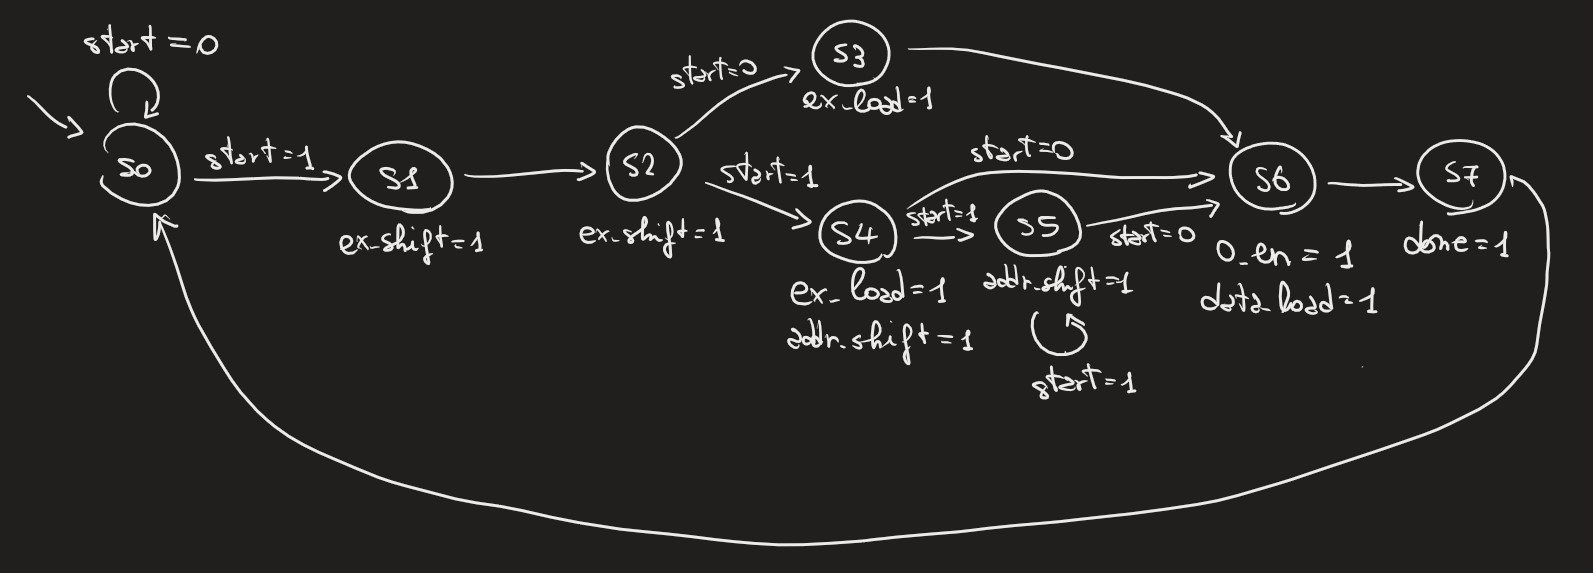 start=0
S0
start=1
S1
ex_shift=1
S2
ex_shift=1
start=0
S3
ex_load=1
start=1
S4
ex_load=1
addr_shift=1
start=0
start=1
S5
addr_shift=1
start=1
start=0
S6
O_en=1
data_load=1
S7
done=1